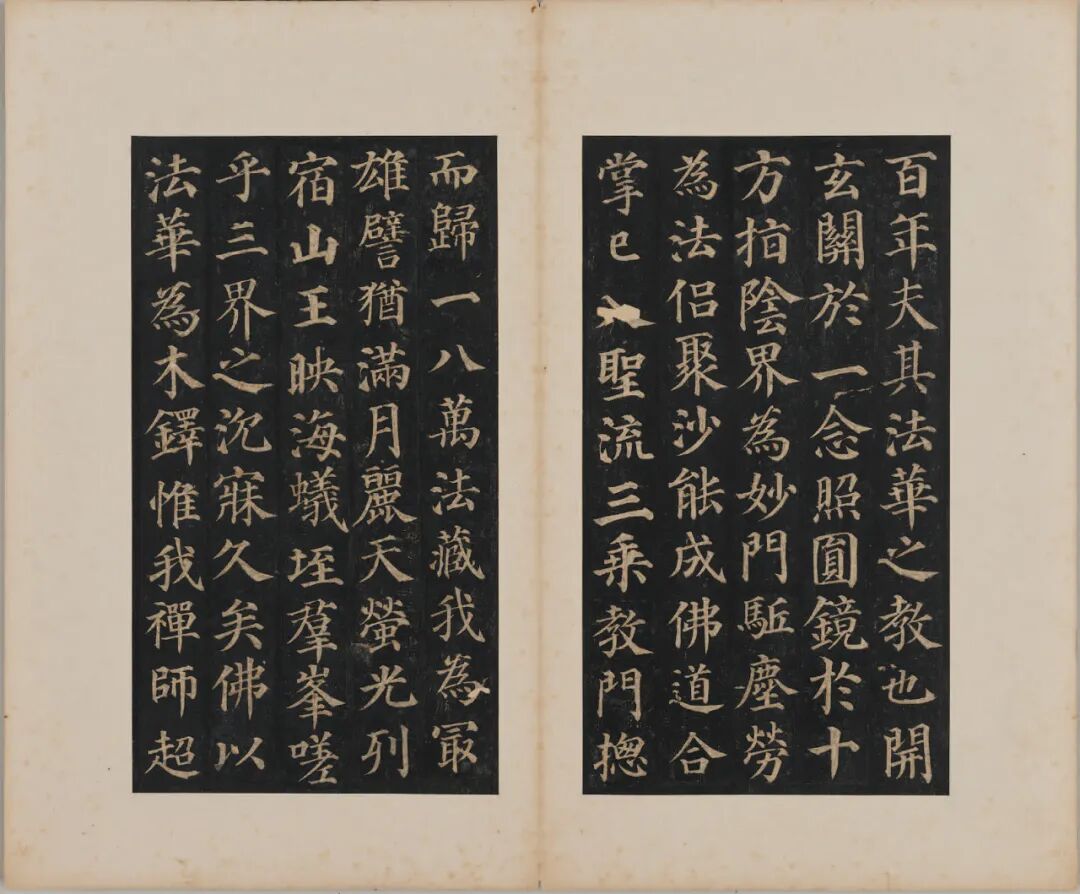 百年夫其法華之教也開
玄關於一念照圎鏡於十
方指陰界為妙門駈塵勞
為法侶聚沙能成佛道合
掌已入聖流三乘教門揔
而歸一八萬法藏我為冣
雄譬猶滿月麗天螢光列
宿山王映海蟻垤羣峯嗟
乎三界之沉寐久矣佛以
法華為木鐸惟我禪師超